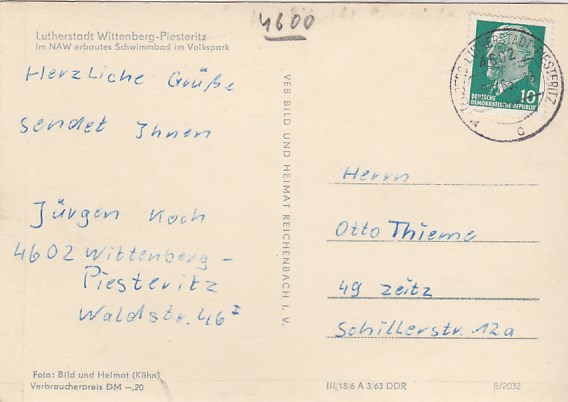 4600
Lutherstadt Wittenberg-Piesteritz
Im NAW erbautes Schwimmbad im Volkspark
Herzliche Grüße
sendet Ihnen
Jürgen Koch
4602 Wittenberg-
Piesteritz
Waldstr. 46 I
Foto: Bild und Heimat (Kühn)
Verbraucherpreis DM -,20
VEB BILD UND HEIMAT REICHENBACH I. V.
LUTHERSTADT PIESTERITZ
4602
c
10
DEUTSCHE
DEMOKRATISCHE REPUBLIK
Herrn
Otto Thieme
49 Zeitz
Schillerstr. 12a
III/18/6 A 3/63 DDR
8/2032